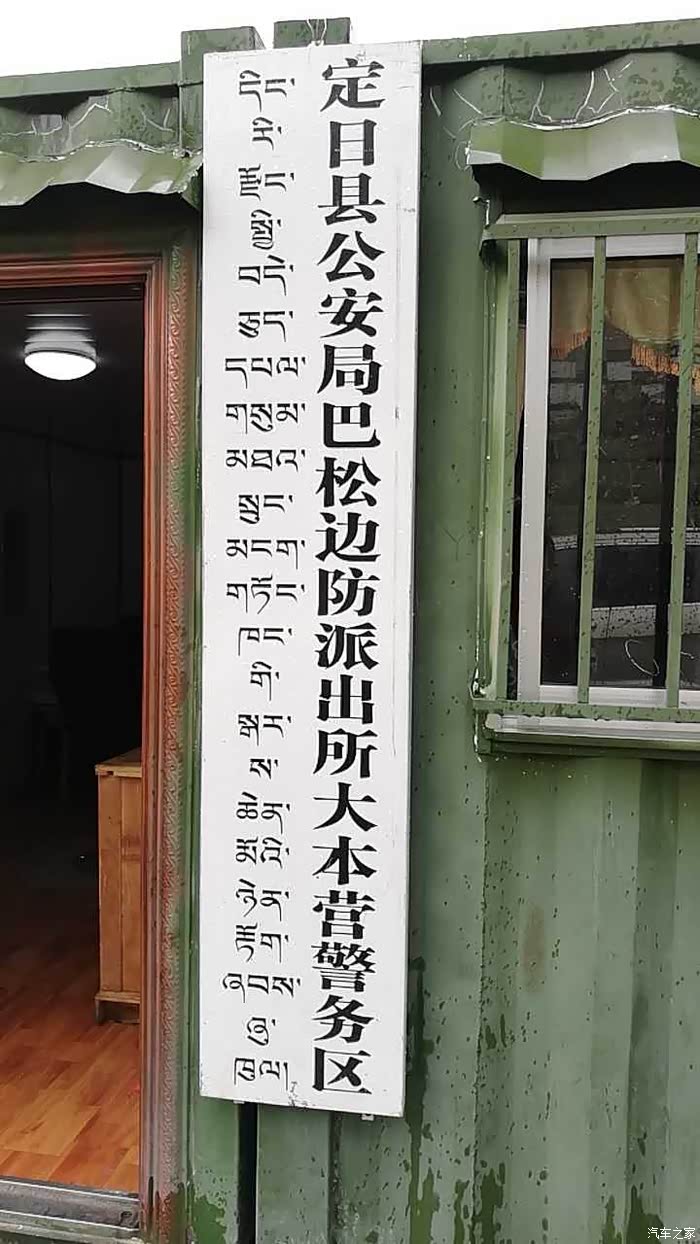 དིང་
རི་
རྫོང་
སྤྱི་
བདེ་
ཅུད་
དཔལ་
གསུམ་
མཐའ་
སྲུང་
མངག་
གཏོང་
ཁང་
གི་
སྒར་
ས་
ཆེན་
མོའི་
ཉེན་
རྟོག་
ཞབས་
ཞུ་
ཁུལ།
定日县公安局巴松边防派出所大本营警务区
汽车之家